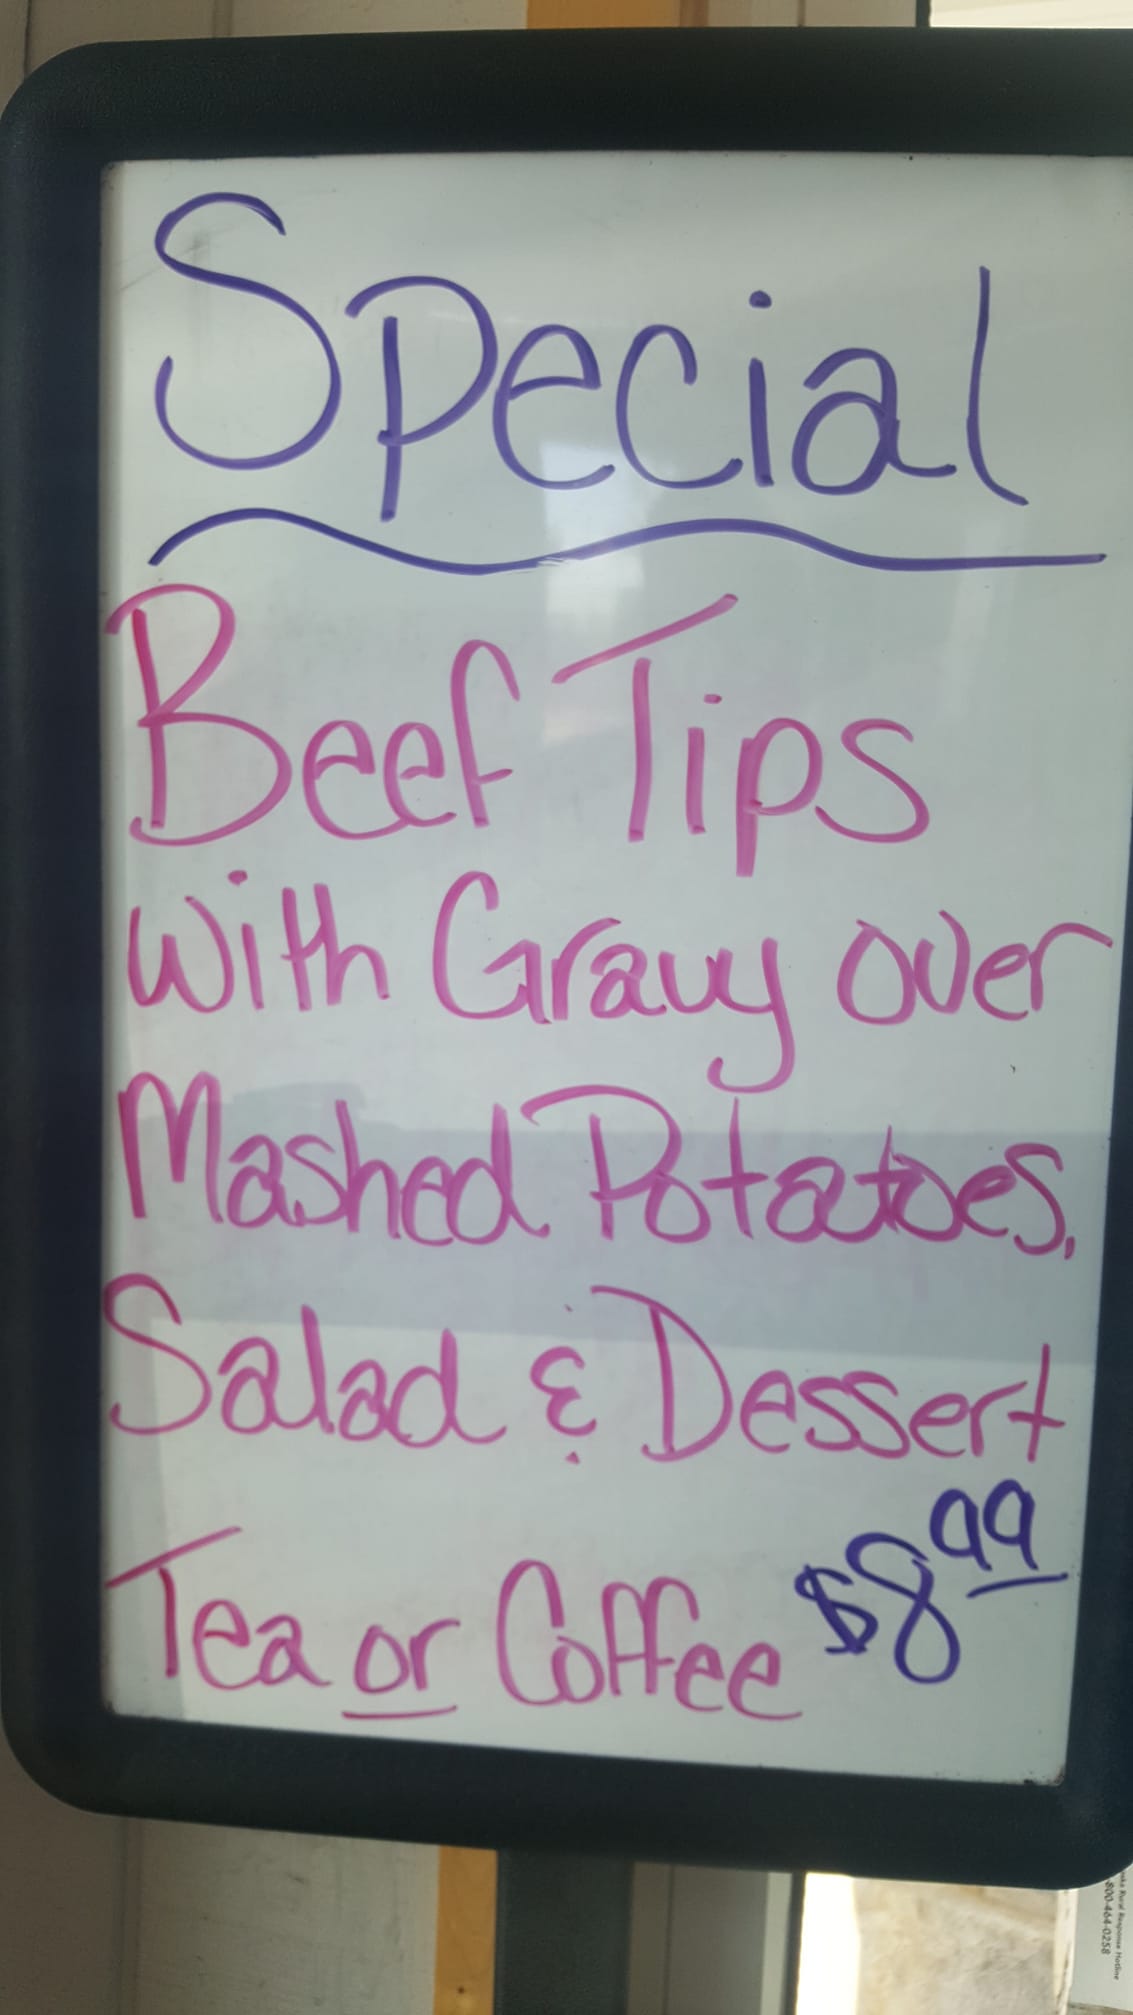 Special
Beef Tips
With Gravy over
Mashed Potatoes.
Salad & Dessert
Tea or Coffee $8 99
Rural Response Hotline
800-464-0258